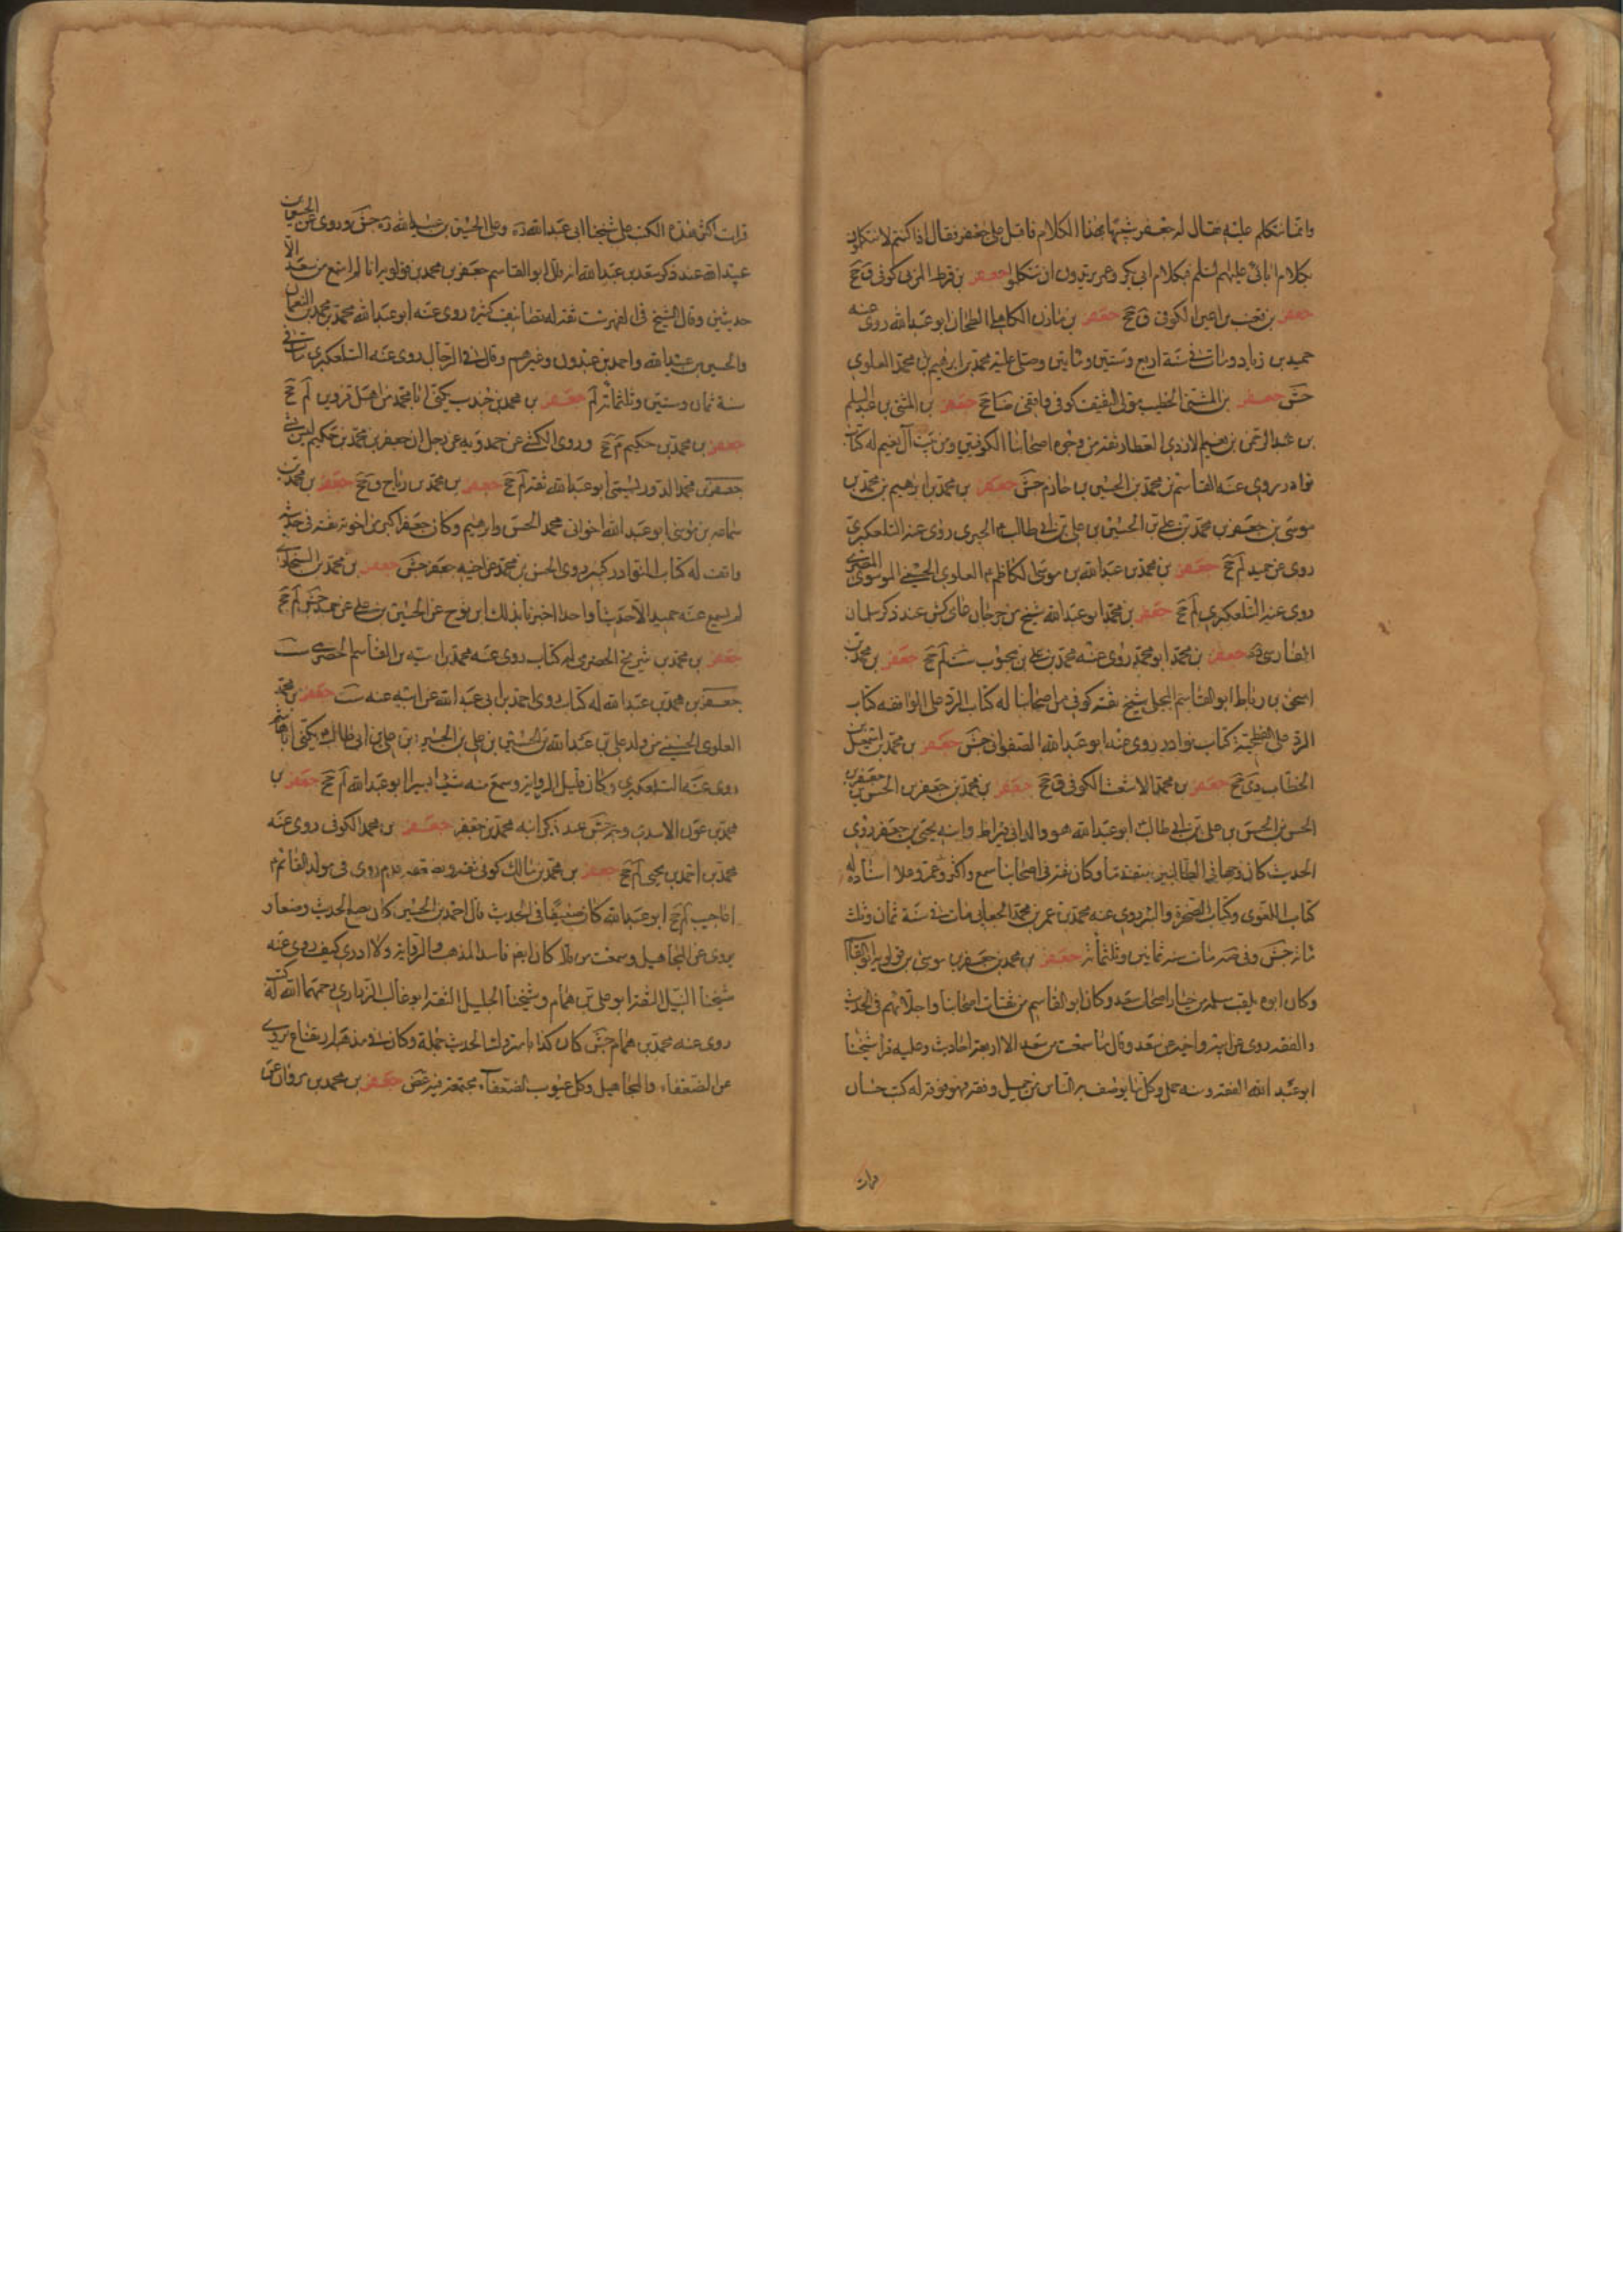 وانما نتكلم عليه فقال له جعفر شبها بهذا الكلام فاقبل على جعفر فقال اذا كنتم لا تتكلمون
بكلام ابائى عليهم السلم فبكلام ابى بكر وعمر تريدون ان تتكلموا جعفر بن قرط المزنى كوفى ق جخ
جعفر بن قعنب بن اعين الكوفى ق جخ جعفر بن مازن الكاهلى الطحان ابو عبد الله روى عنه
حميد بن زياد ومات فى سنة اربع وستين ومايتين وصلى عليه محمد بن ابرهيم بن محمد العلوى
جش جعفر بن المثنى الخطيب مولى الثقيف كوفى واقفى ضا جخ جعفر بن المثنى بن عبد السلم
بن عبد الرحمن بن نعيم الازدى العطار ثقة من وجوه اصحابنا الكوفيين ومن بيت آل نعيم له كتاب
نوادر يروى عنه القاسم بن محمد بن الحسين بن خازم جش جعفر بن محمد بن ابرهيم بن محمد بن
موسى بن جعفر بن محمد بن على بن الحسين بن على بن ابى طالب الحيرى روى عنه التلعكبرى
روى عن حميد لم جخ جعفر بن محمد بن عبد الله بن موسى الكاظم العلوى الحسينى الموسوى المصرى
روى عنه التلعكبرى لم جخ جعفر بن محمد ابو عبد الله شيخ من جرجان عامى كش عند ذكر سلمان
الفارسى جعفر بن محمد ابو محمد روى عنه محمد بن على بن محبوب ست لم جخ جعفر بن محمد بن
اسحق بن رباط ابو القاسم البجلى شيخ ثقة كوفى من اصحابنا له كتاب الرد على الواقفه كتاب
الرد على الفطحية كتاب نوادر روى عنه ابو عبد الله الصفوانى جش جعفر بن محمد بن اسمعيل
الخطاب دى جخ جعفر بن محمد الاشعث الكوفى ق جخ جعفر بن محمد بن جعفر بن الحسن بن جعفر بن
الحسن بن الحسن بن على بن ابى طالب ابو عبد الله هو والد ابى قيراط وابنه يحيى بن جعفر روى
الحديث كان وجها فى الطالبيين متقدما وكان ثقة فى اصحابنا سمع واكثر وعمر وعلا اسناده له
كتاب التاريخ العلوى وكتاب الصخرة والبئر روى عنه محمد بن عمر بن محمد الجعابى مات فى سنة ثمان وثلث
مائه جش جعفر بن محمد بن جعفر بن موسى بن قولويه ابو القاسم
وكان ابوه يلقب مسلمه من خيار اصحاب سعد وكان ابو القاسم من ثقات اصحابنا واجلائهم فى الحديث
والفقه روى عن ابيه واخيه عن سعد وقال ما سمعت من سعد الا اربعة احاديث وعليه قرا شيخنا
ابو عبد الله الفقه ومنه حمل وكل ما يوصف به الناس من جميل وفقه فهو فوقه له كتب حسان
قرات
قرات اكثر هذه الكتب على شيخنا ابى عبد الله ره وعلى الحسين بن عبيد الله ره جش وروى عن الحسين بن
عبيد الله عند ذكر سعد بن عبد الله انه قال ابو القاسم جعفر بن محمد بن قولويه انا لم اسمع من سعد الا
حديثين وقال الشيخ فى الفهرست ثقة له تصانيف كثيره روى عنه ابو عبد الله محمد بن محمد بن النعمان
والحسين بن عبيد الله واحمد بن عبدون وغيرهم وقال فى الرجال روى عنه التلعكبرى مات فى
سنة ثمان وستين وثلثمائه لم جعفر بن محمد بن جندب يكنى ابا محمد من اهل قزوين لم جخ
جعفر بن محمد بن حكيم م جخ وروى الكشى عن حمدويه عن رجل ان جعفر بن محمد بن حكيم ليس بشى
جعفر بن محمد الدوريستى ابو عبد الله ثقة لم جخ جعفر بن محمد بن رباح ق جخ جعفر بن محمد بن
سماعه بن موسى ابو عبد الله اخو ابى محمد الحسن وابرهيم وكان جعفر اكبر من اخوته ثقة فى حديثه
واقف له كتاب النوادر كبير روى الحسن بن محمد عن اخيه جعفر جش جعفر بن محمد بن السنجارى
لم يسمع عنه حميد الا حديثا واحدا اخبرنا بذلك ابن نوح عن الحسين بن على عن حميد جش لم جخ
جعفر بن محمد بن شريح الحضرمى له كتاب روى عنه محمد بن اميه بن القاسم الحضرمى ست
جعفر بن محمد بن عبد الله له كتاب روى احمد بن ابى عبد الله عن ابيه عنه ست جعفر بن محمد
العلوى الحسينى من ولد على بن عبد الله بن الحسين بن على بن الحسين بن على بن ابى طالب يكنى ابا هاشم
روى عنه التلعكبرى وكان قليل الروايه وسمع منه شيئا يسيرا ابو عبد الله لم جخ جعفر بن
محمد بن عون الاسدى وجه جش عند ذكر ابنه محمد بن جعفر جعفر بن محمد الكوفى روى عنه
محمد بن احمد بن يحيى لم جخ جعفر بن محمد بن مالك كوفى ثقة ويضعفه قوم روى فى مولد القائم
اعاجيب لم جخ ابو عبد الله كان ضعيفا فى الحديث قال احمد بن الحسين كان يضع الحديث وضعا و
يروى عن المجاهيل وسمعت من قال كان ايضا فاسد المذهب والروايه ولا ادرى كيف روى عنه
شيخنا النبيل الثقة ابو على بن همام وشيخنا الجليل الثقة ابو غالب الزرارى رحمهما الله له كتب
روى عنه محمد بن همام جش كان كذابا متروك الحديث جملة وكان فى مذهبه ارتفاع يروى
عن الضعفاء والمجاهيل وكل عيوب الضعفاء مجتمعة فيه غض جعفر بن محمد بن مروان عن